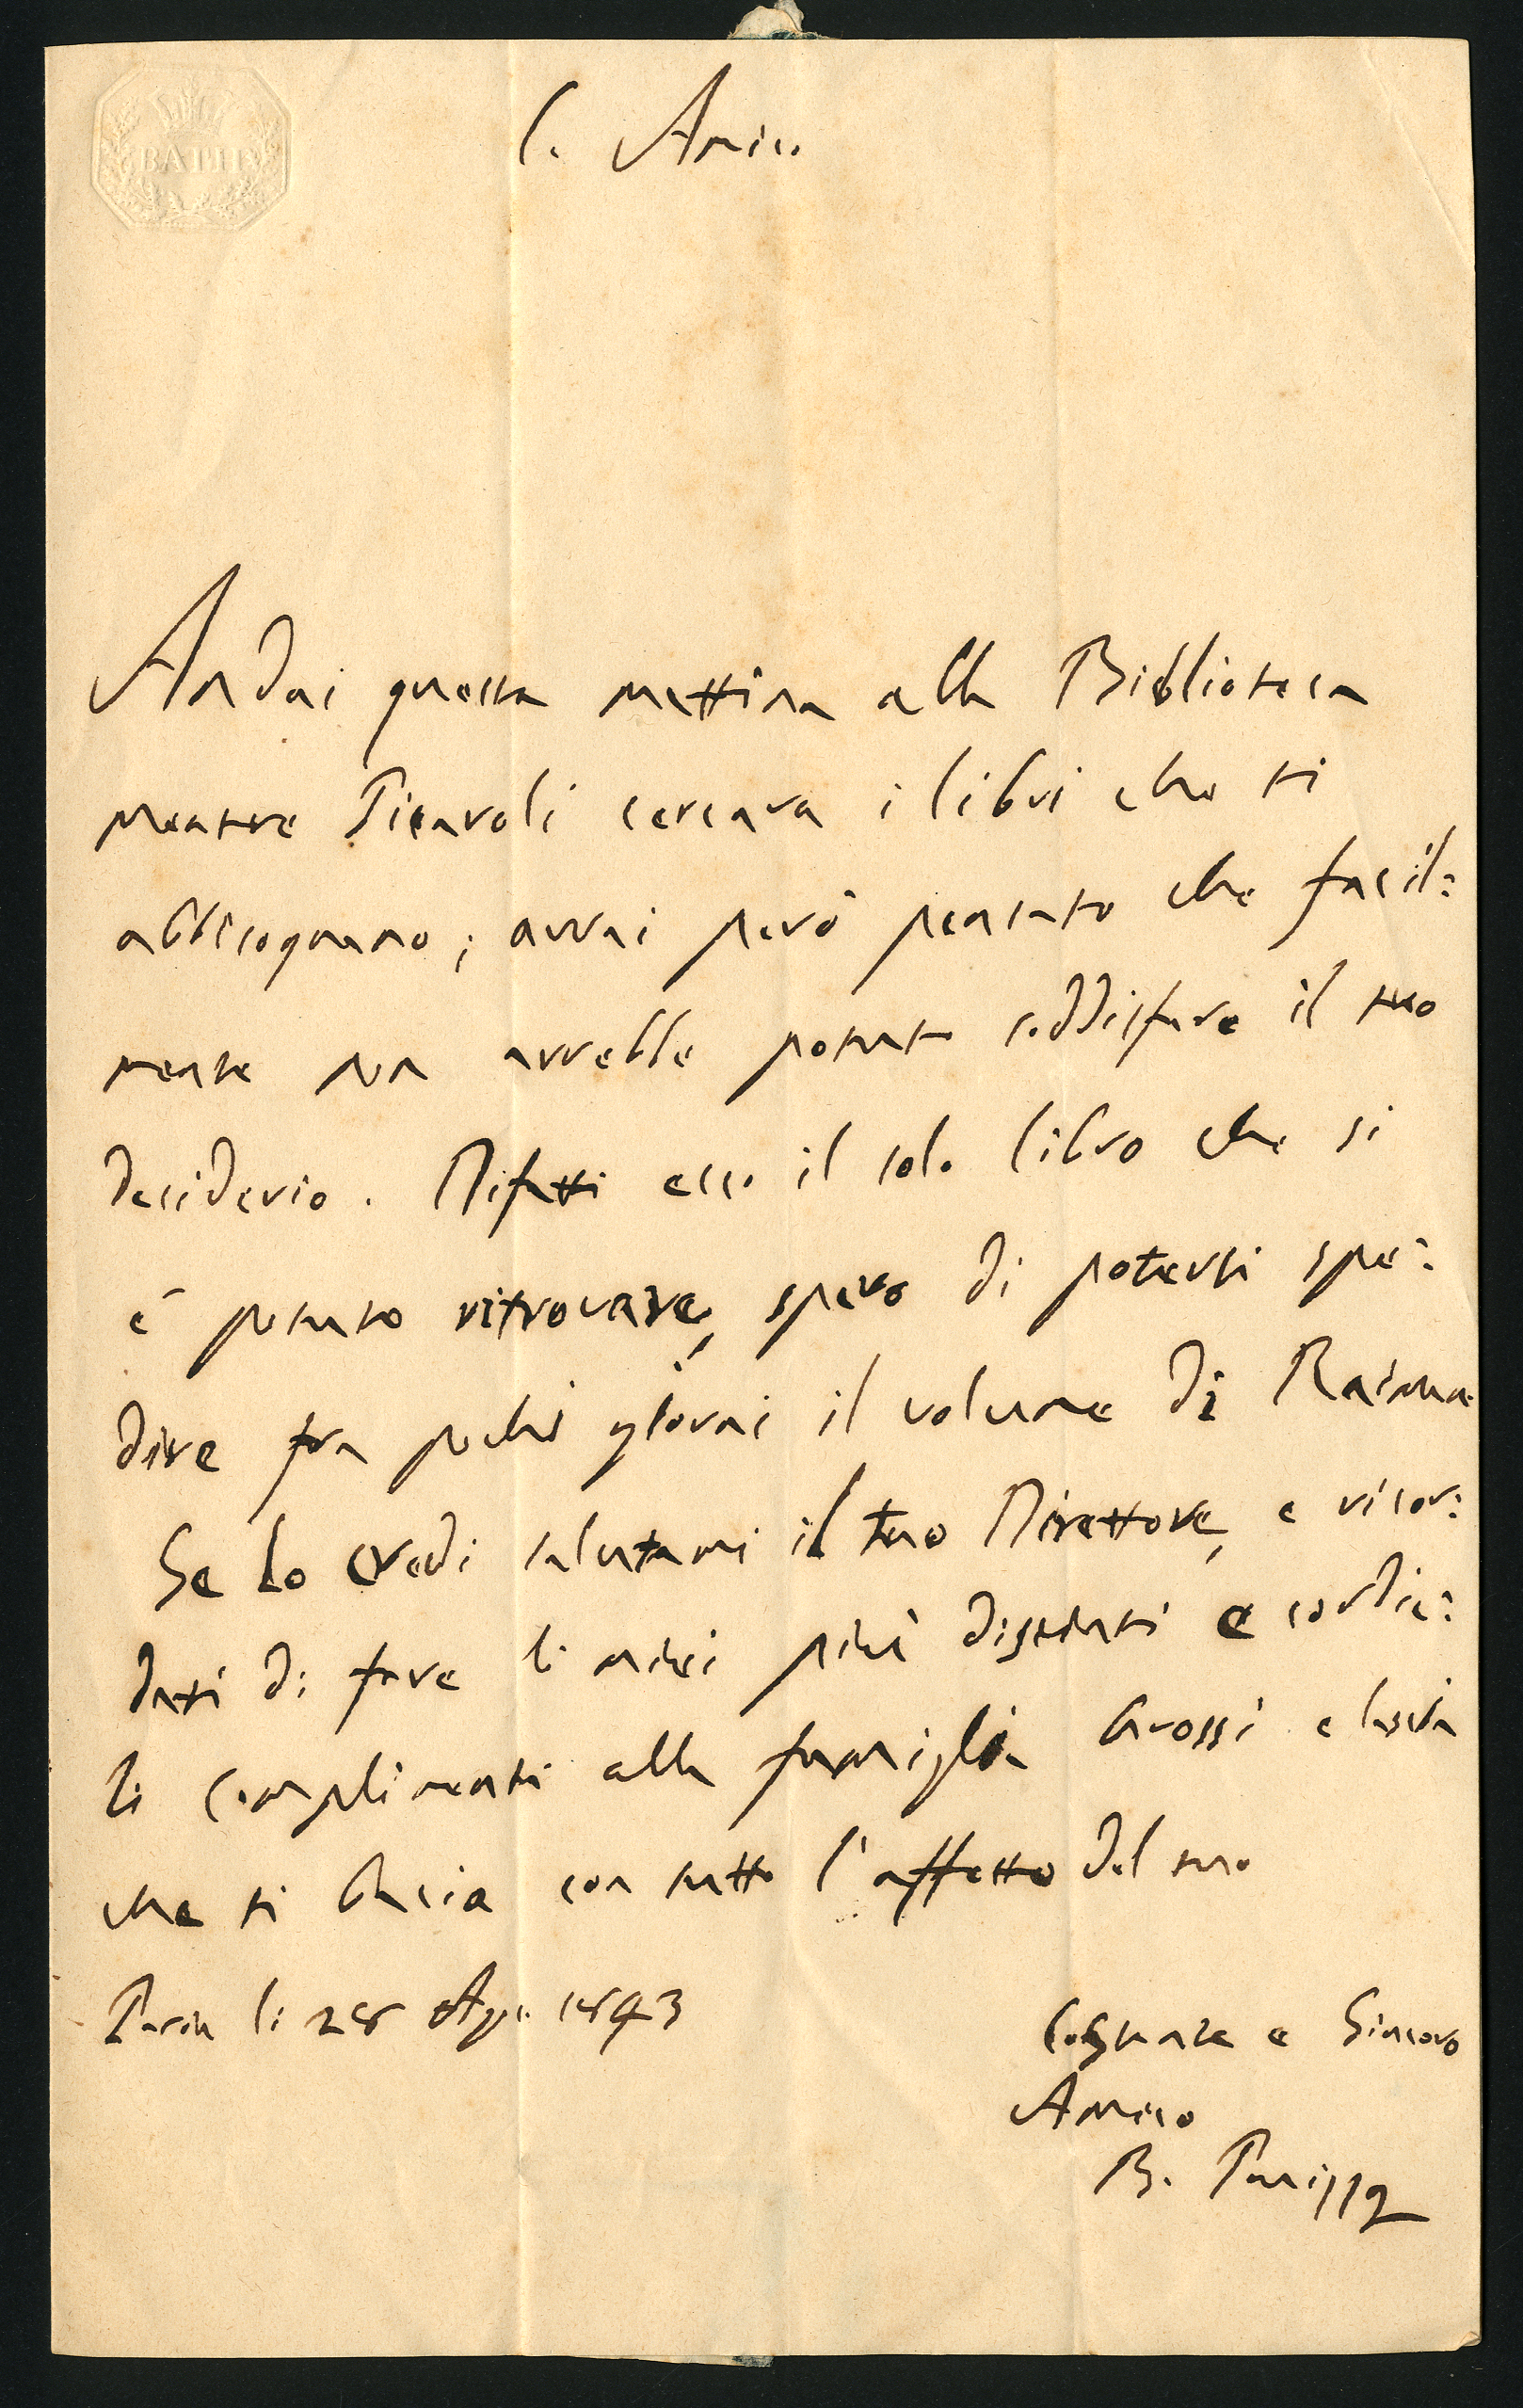 BATH
C. Amico
Andai questa mattina alla Biblioteca
mentre Picaroli cercava i libri che ti
abbisognano; avrai però pensato che facil=
mente non avrebbe potuto soddisfare il tuo
desiderio. Difatti ecco il solo libro che si
è potuto ritrovare, spero di poterti spe=
dire fra pochi giorni il volume di
Se lo credi salutami il tuo Direttore, e ricor=
dati di fare li miei più distinti e cordia=
li complimenti alla famiglia Grossi e lascia
che ti bacia con tutto l'affetto del tuo
Pavia li 28 Ago. 1843
Costante e Sincero
Amico
B. Panizza